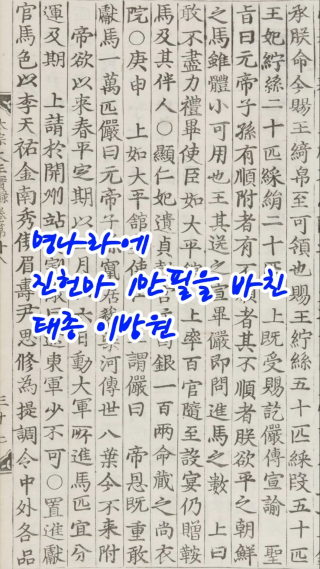 承朕命今賜王綺帛至可領也賜王紵絲五十匹綵段五十匹
王妃紵絲二十匹綵絹二十匹 上既受賜訖儼傳宣諭 聖
旨曰元帝子孫有順附者有不順者其不順者朕欲平之朝鮮
之馬雖體小可用也王其送之畢儼即問進馬之數 上曰
敢不盡力禮畢使臣如大平上率百官隨至設宴仍贈鞍
馬及其伴人○顯仁妃遺貞白銀一百兩命藏之尚衣
院○庚申 上如大平館使謂儼曰 帝恩既重敢
獻馬一萬匹儼曰元帝子竄居河傳世八葉今不來附
帝欲以來春平定期以月日動大軍所進馬匹宜分
運及期 上請於開州站東軍少不可○置進獻
官馬色以李天祐金南秀眉壽尹思修為提調令中外各品
명나라에
진헌마 1만필을 바친
태종 이방원